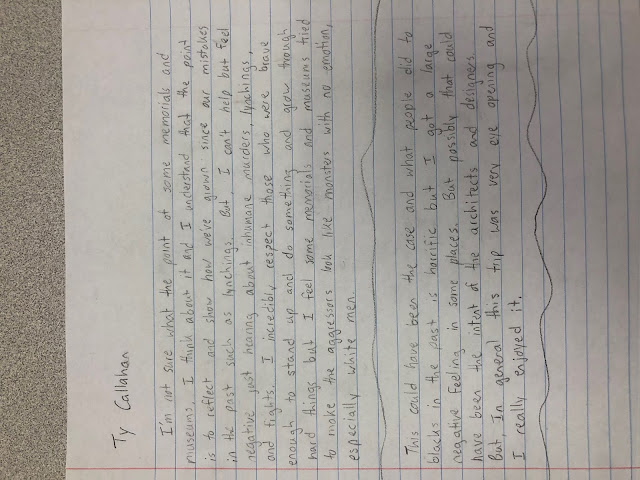 Ty Callahan
I'm not sure what the point of some memorials and
museums, I think about it and I understand that the point
is to reflect and show how we've grown since our mistakes
in the past such as lynchings. But, I can't help but feel
negative just hearing about inhumane murders, lynchings,
and fights. I incredibly respect those who were brave
enough to stand up and do something and grow trough
hard things but I feel some memorials and museums tried
to make the aggressors look like monsters with no emotion,
especially white men.
This could have been the case and what people did to
blacks in the past is horrific but I got a large
negative feeling in some places. But possibly that could
have been the intent of the architects and designers.
But, In general this trip was very eye opening and
I really enjoyed it.